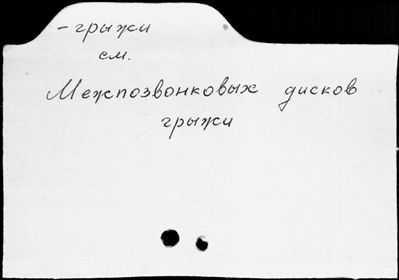 - грыжи
см.
Межпозвонковых дисков
грыжи